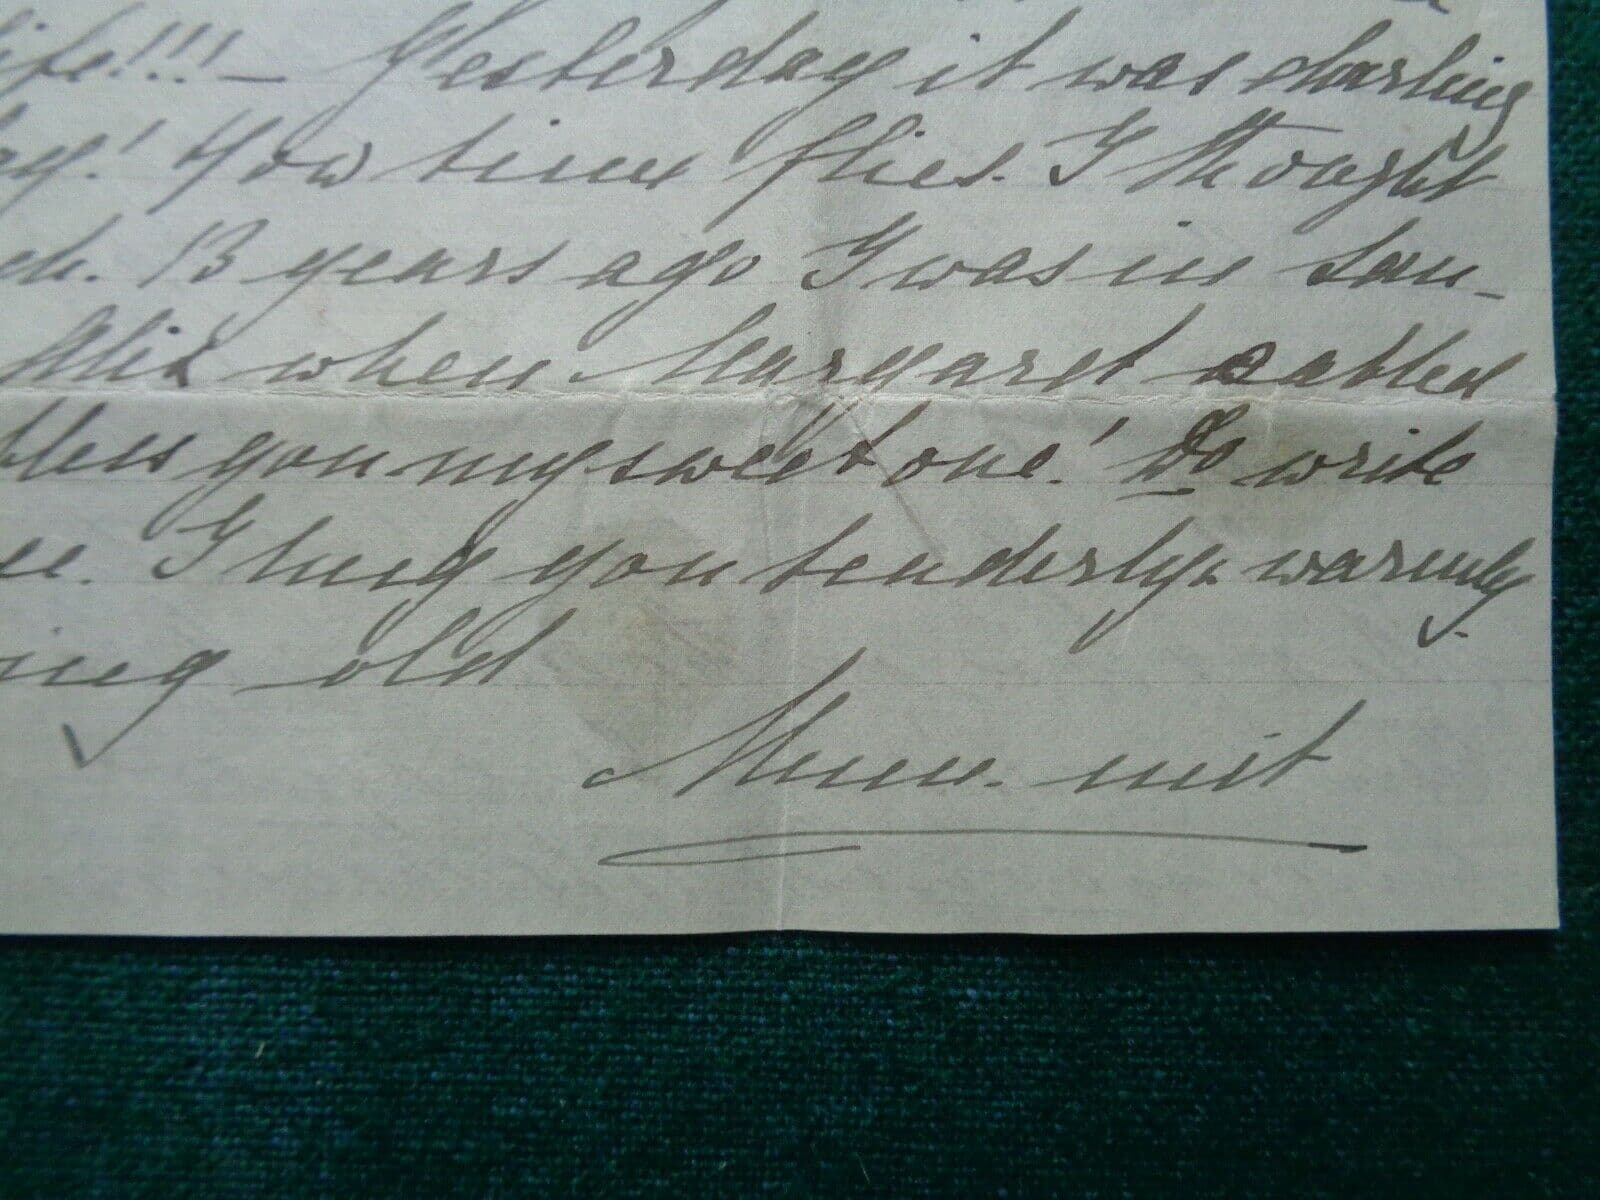 life!!! – Yesterday it was darling
ay! How time flies. I thought
ch. 13 years ago I was in San-
when Margaret cabled
bless you my sweet one! Do write
I hug you tenderly & warmly.
ing old